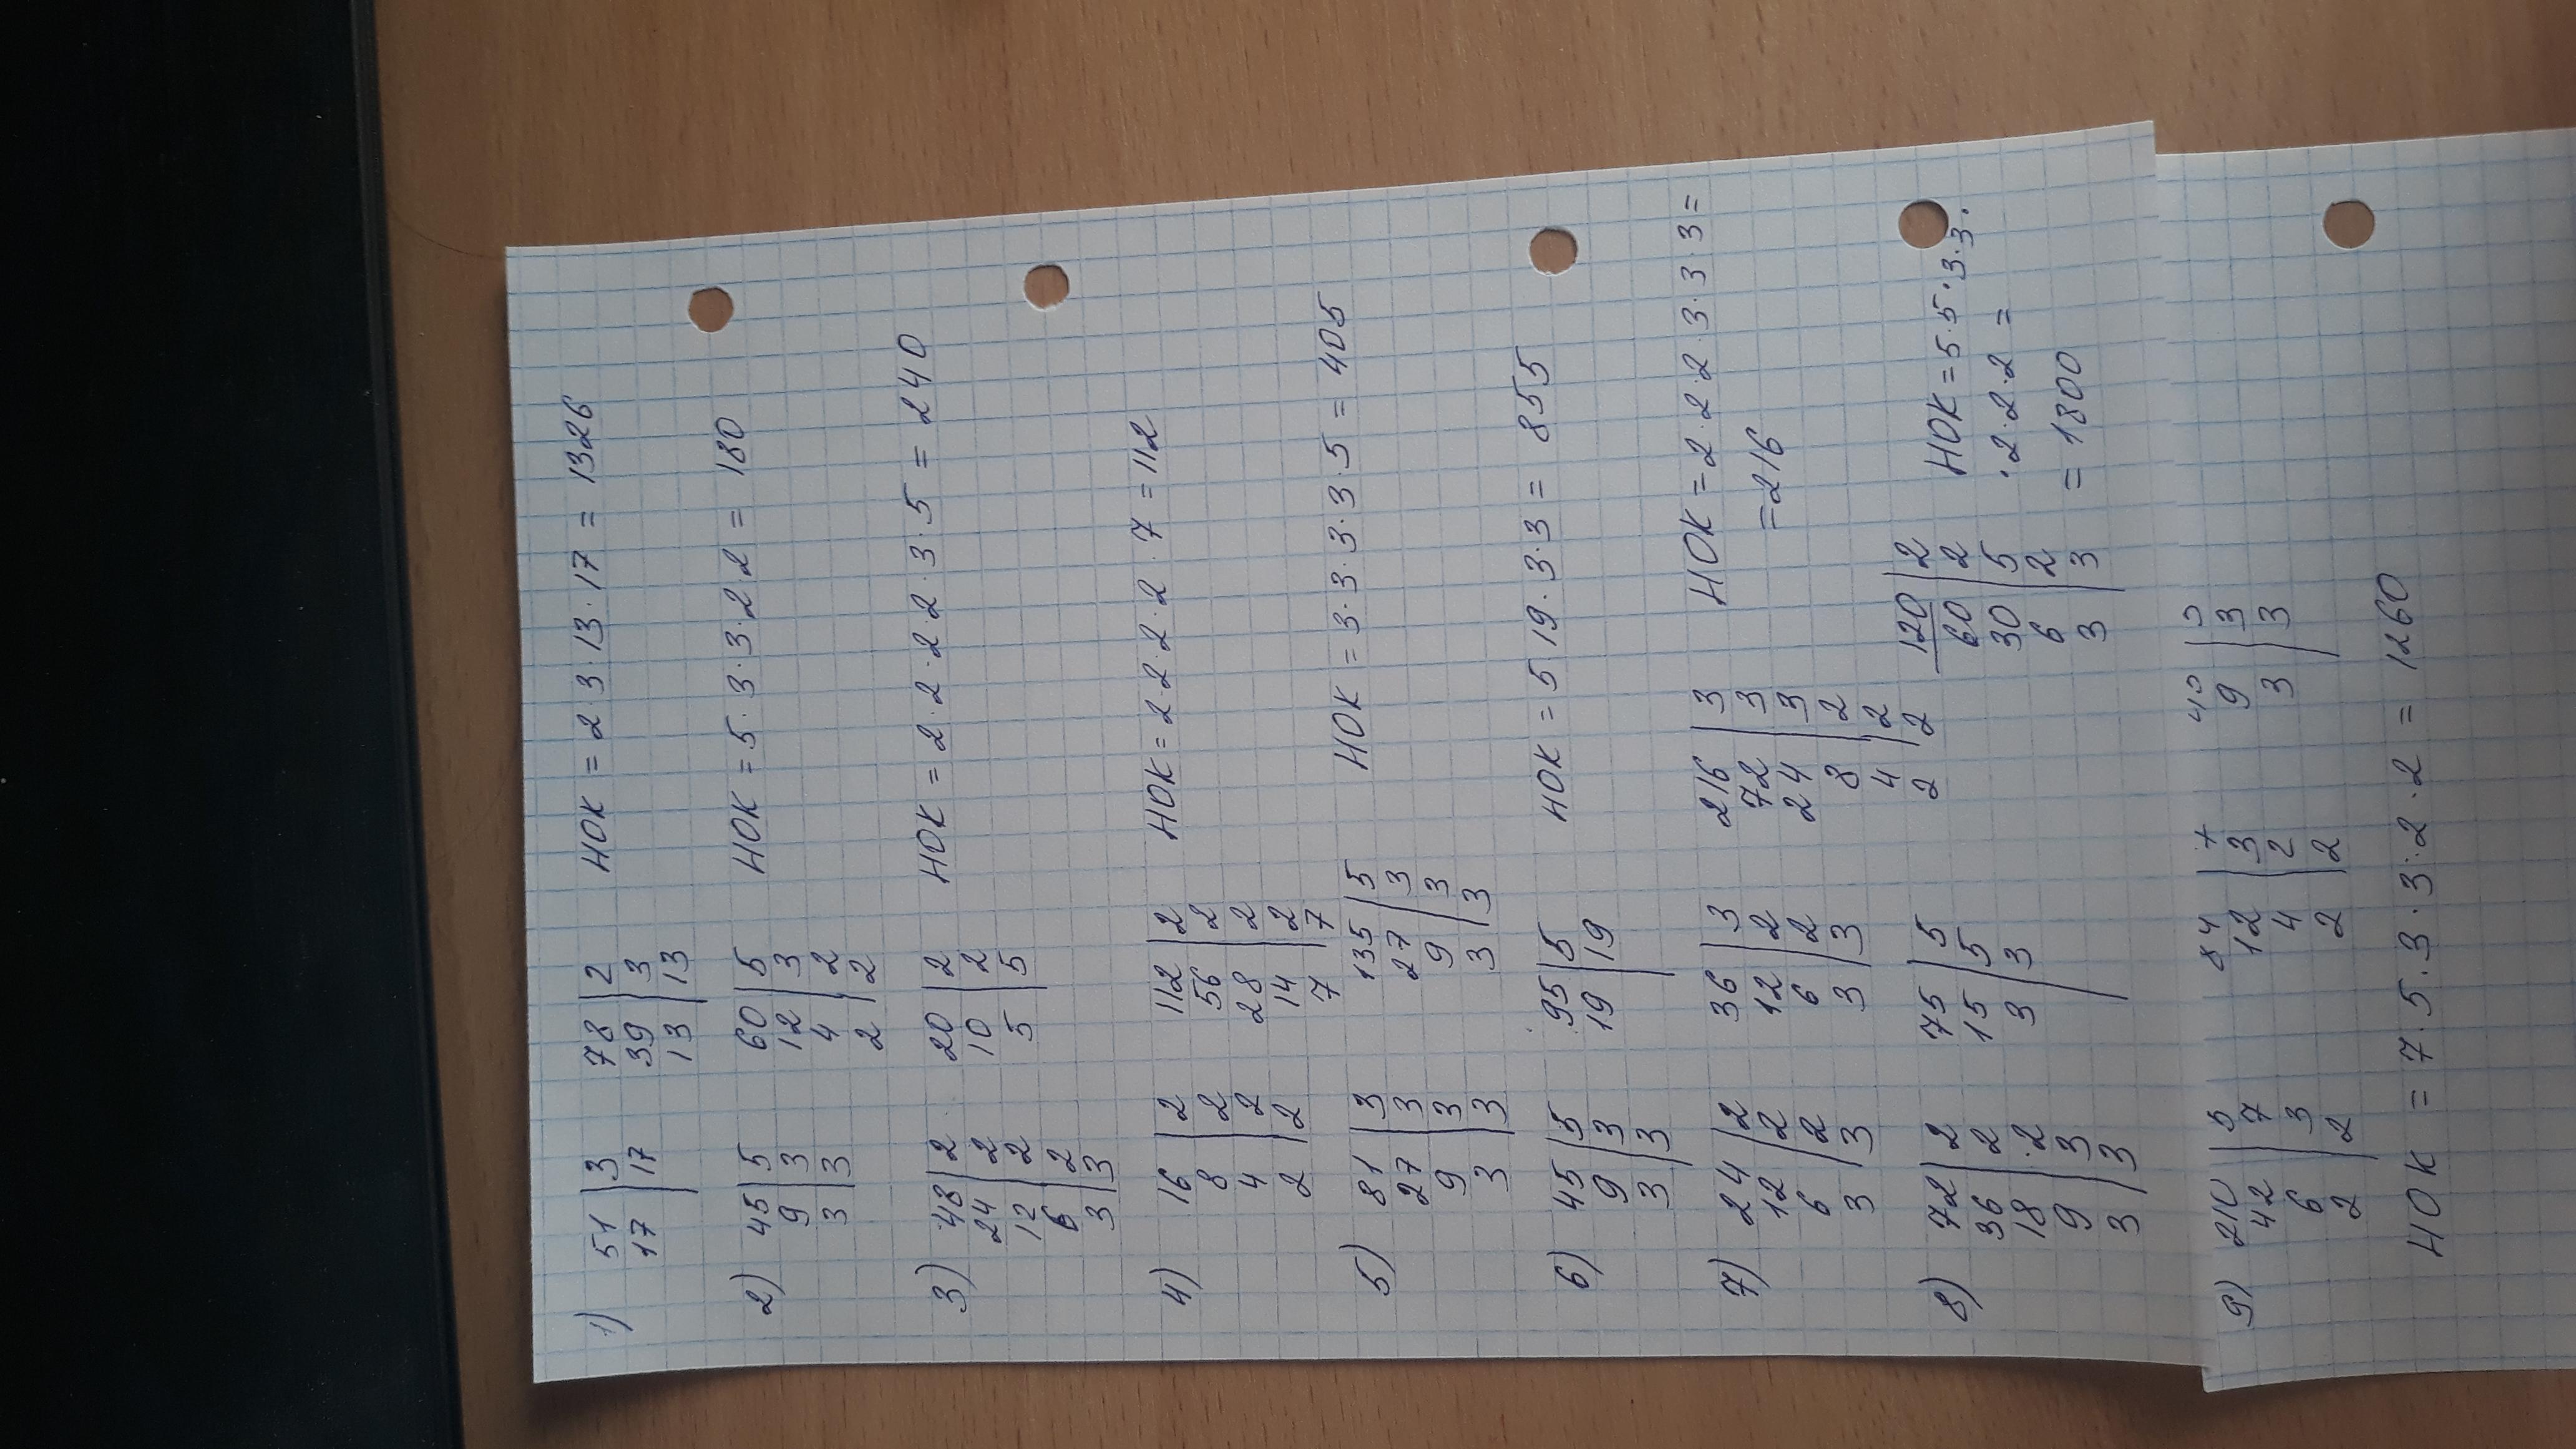 1) 51 | 3 78 | 2 НОК = 2 · 3 · 13 · 17 = 1326
17 | 17 39 | 3
13 | 13
2) 45 | 5 60 | 5 НОК = 5 · 3 · 3 · 2 · 2 = 180
9 | 3 12 | 3
3 | 3 4 | 2
2 | 2
3) 48 | 2 20 | 2 НОК = 2 · 2 · 2 · 2 · 3 · 5 = 240
24 | 2 10 | 2
12 | 2 5 | 5
6 | 2
3 | 3
4) 16 | 2 112 | 2 НОК = 2 · 2 · 2 · 2 · 7 = 112
8 | 2 56 | 2
4 | 2 28 | 2
2 | 2 14 | 2
7 | 7
5) 81 | 3 135 | 5 НОК = 3 · 3 · 3 · 3 · 5 = 405
27 | 3 27 | 3
9 | 3 9 | 3
3 | 3 3 | 3
6) 45 | 5 95 | 5 НОК = 5 19 · 3 · 3 = 855
9 | 3 19 | 19
3 | 3
7) 24 | 2 36 | 3 216 | 3 НОК = 2 · 2 · 2 · 3 · 3 · 3 =
12 | 2 12 | 2 72 | 3 = 216
6 | 2 6 | 2 24 | 3
3 | 3 3 | 3 8 | 2
4 | 2
2 | 2
8) 72 | 2 75 | 5 120 | 2 НОК = 5 · 5 · 3 · 3 ·
36 | 2 15 | 5 60 | 2 · 2 · 2 · 2 =
18 | 2 3 | 3 30 | 5 = 1800
9 | 3 6 | 2
3 | 3 3 | 3
9) 210 | 5 84 | 7 45 | 5
42 | 7 12 | 3 9 | 3
6 | 3 4 | 2 3 | 3
2 | 2 2 | 2
НОК = 7 · 5 · 3 · 3 · 2 · 2 = 1260